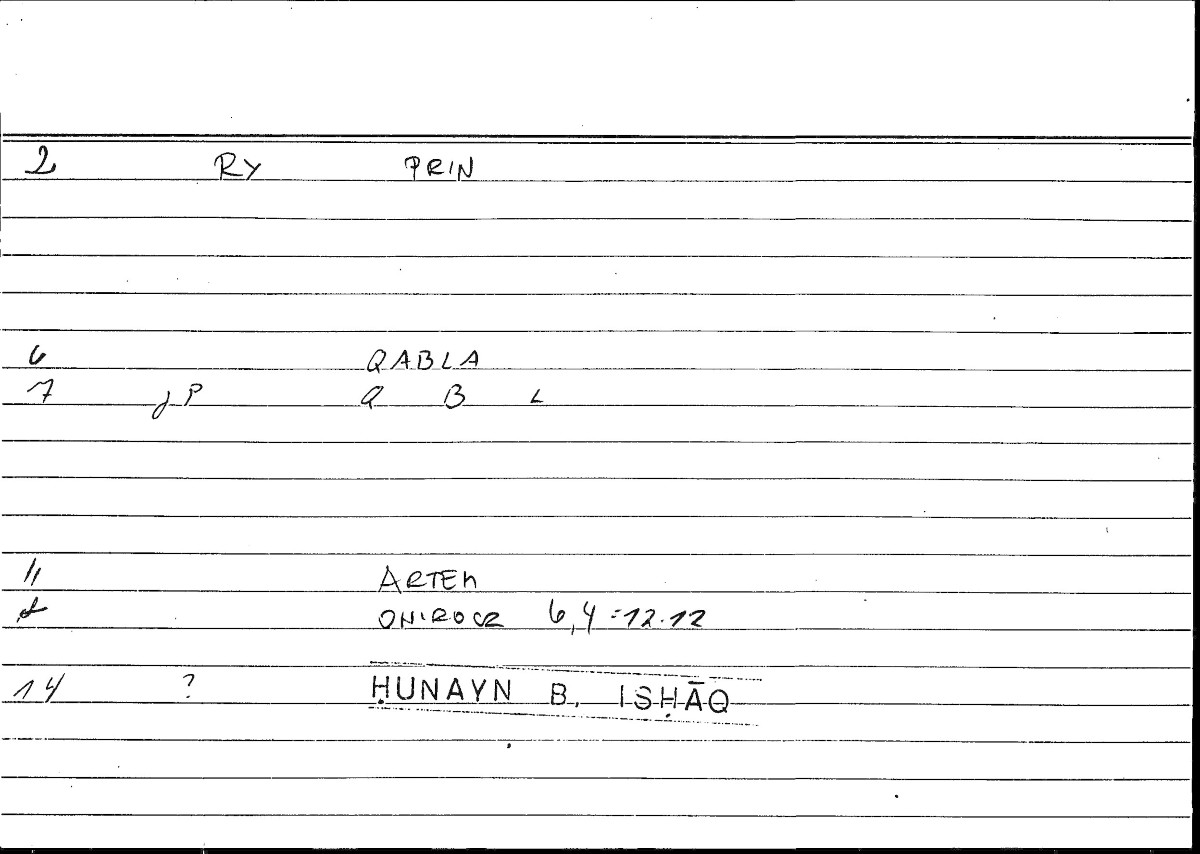 2 RY PRIN
6 QABLA
7 JP Q B L
11 ARTEM
ONIROCR 6,4 = 12.12
14 ? ḤUNAYN B. ISḤĀQ